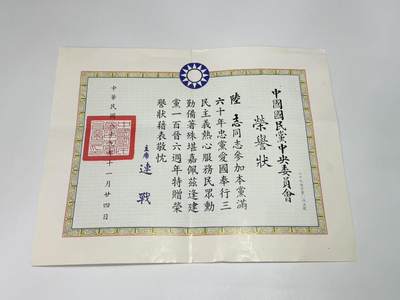 中國國民黨中央委員會
榮譽狀
陸志同志參加本黨滿
六十年忠黨愛國奉行三
民主義熱心服務民眾勳
勤備著殊堪嘉佩茲逢建
黨一百晉六週年特贈榮
譽狀藉表敬忱
主席 連戰
十一月廿四日